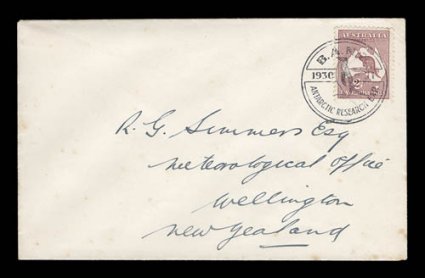 AUSTRALIA
B.A.N.Z.
1930
2
ANTARCTIC RESEARCH EXP.
R. G. Simmers Esq
Meteorological Office
Wellington
New Zealand